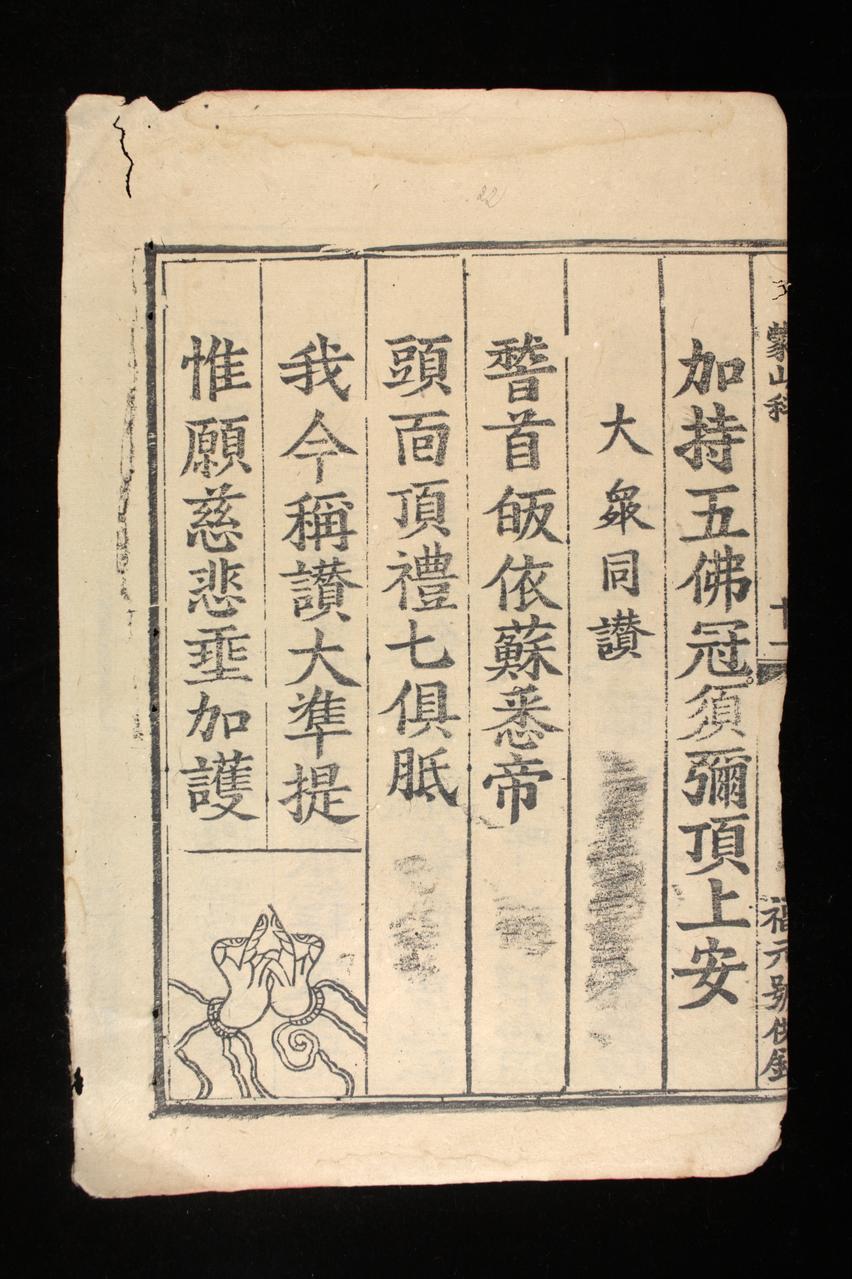 蒙山科
十一
福元號供
加持五佛冠須彌頂上安
大衆同讃
稽首皈依蘇悉帝
頭面頂禮七俱胝
我今稱讃大準提
惟願慈悲垂加護
22